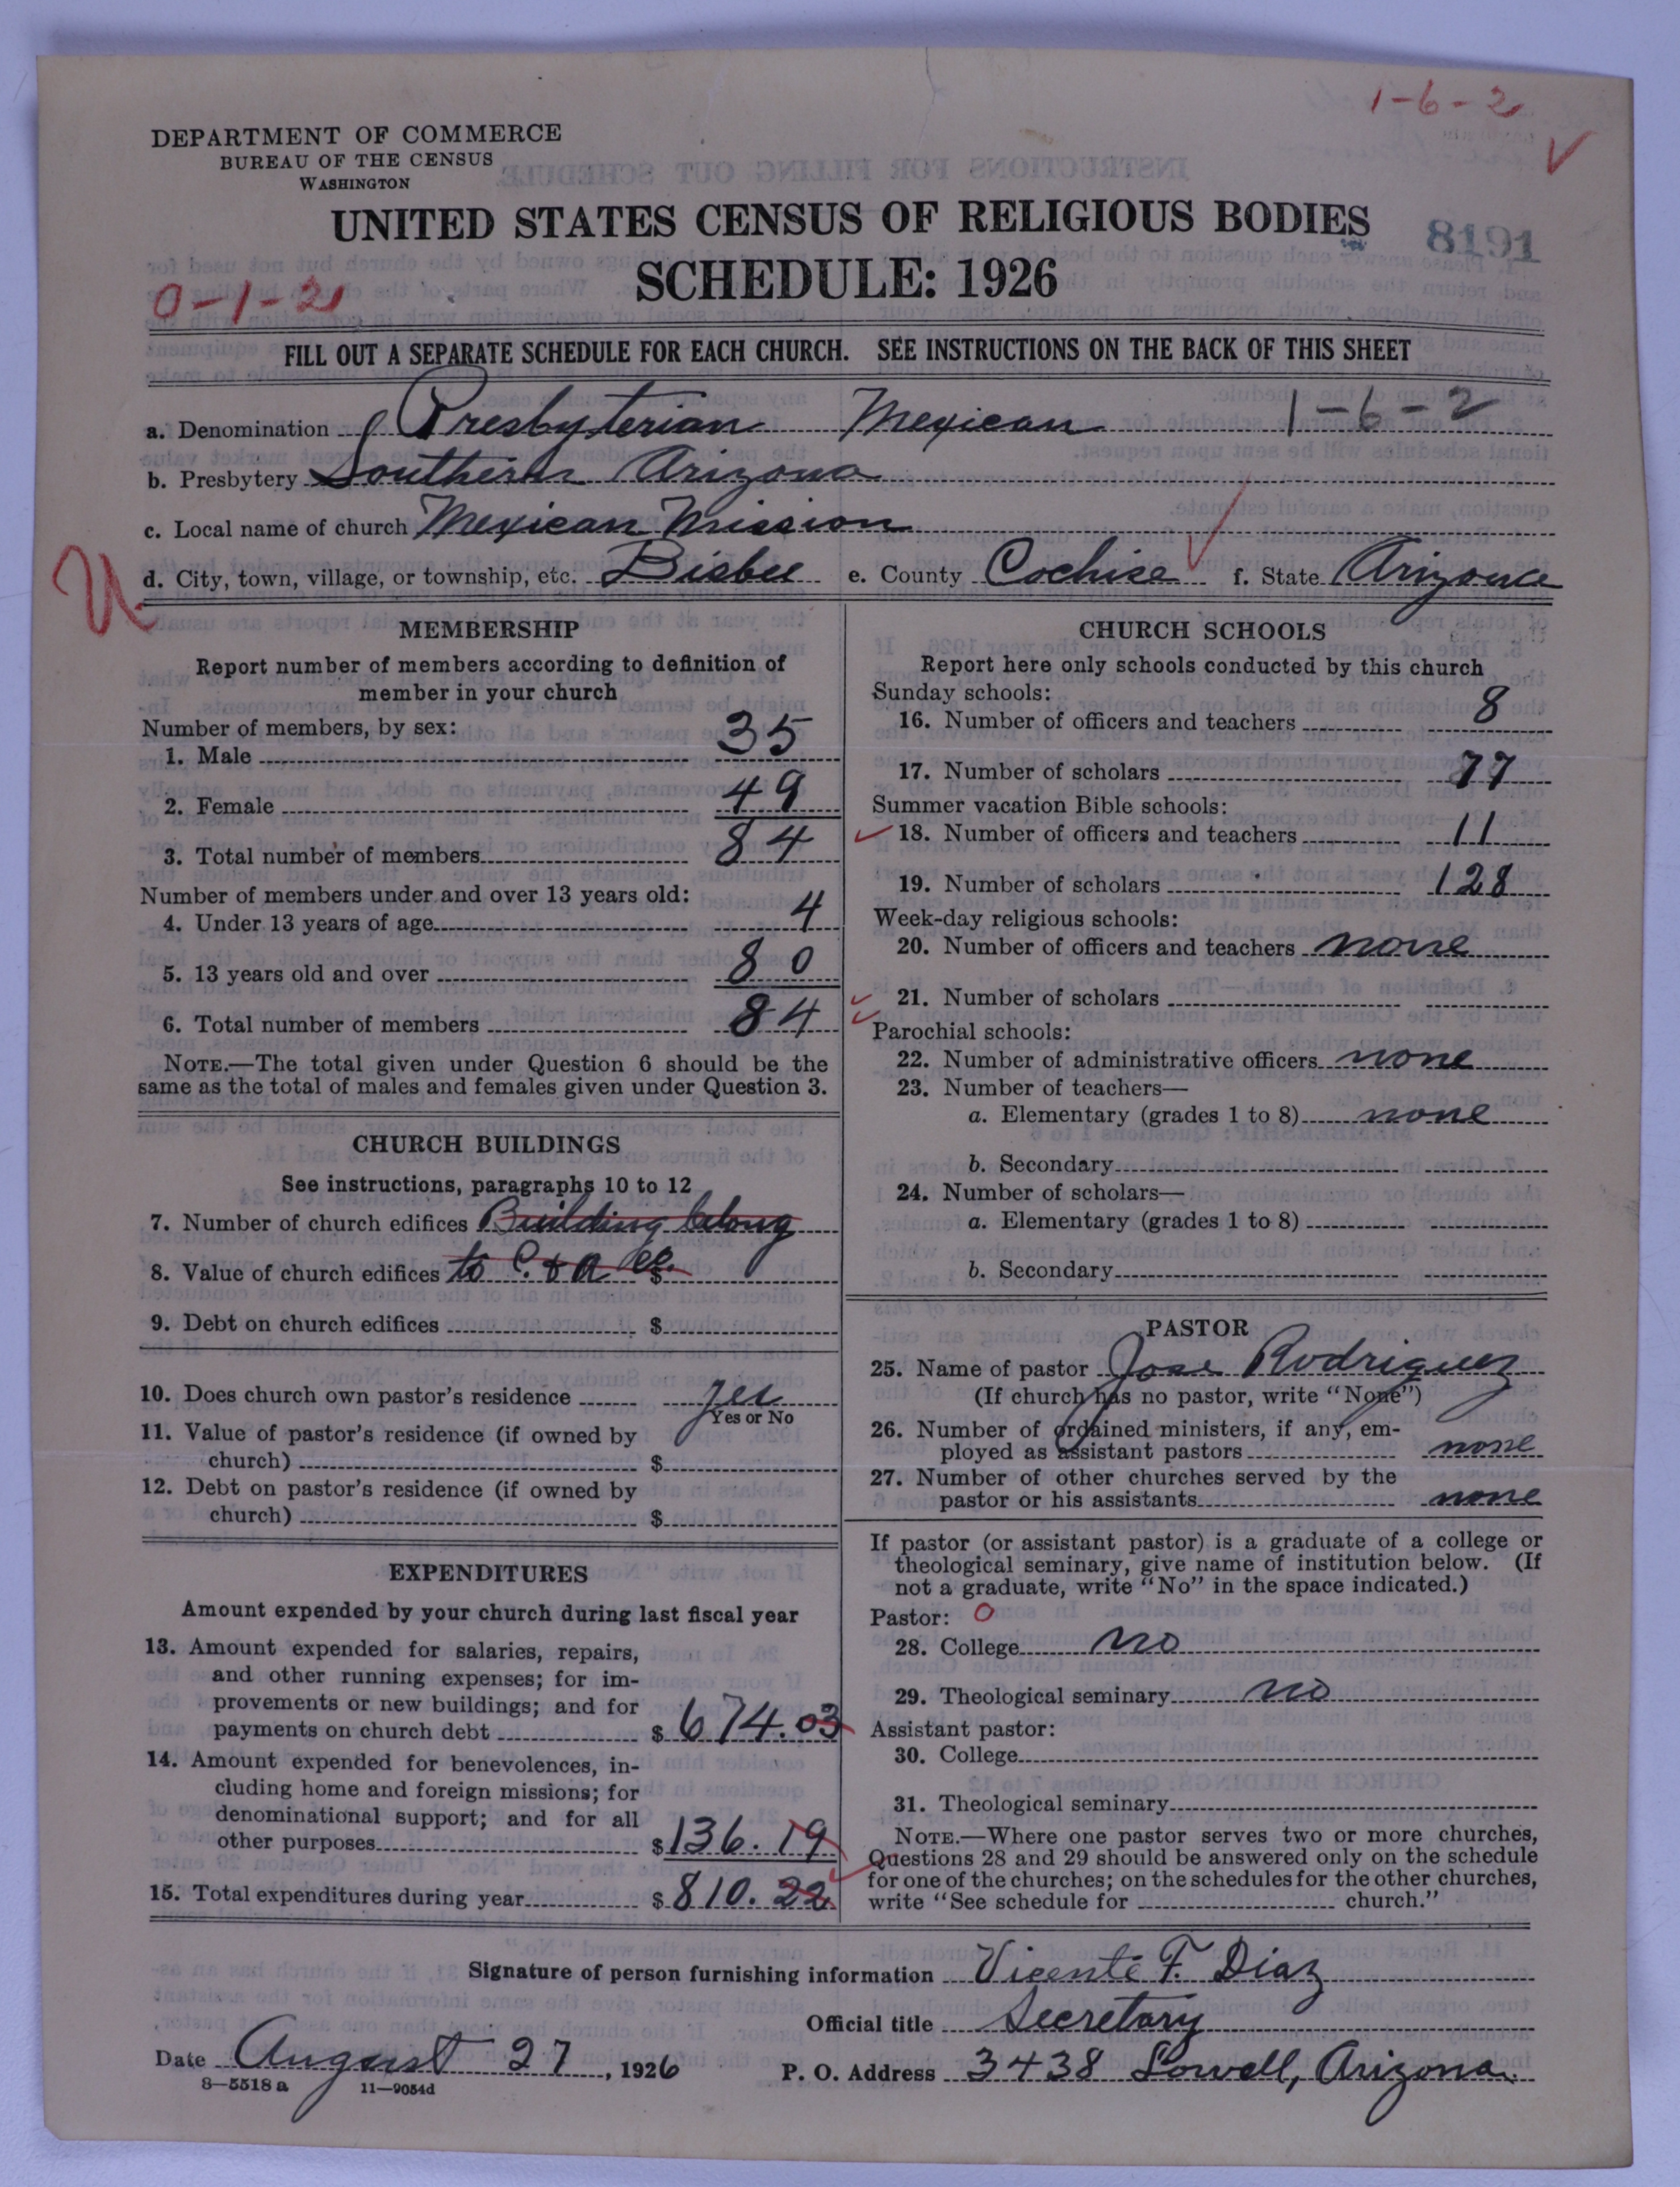 1-6-2
DEPARTMENT OF COMMERCE
BUREAU OF THE CENSUS
WASHINGTON
UNITED STATES CENSUS OF RELIGIOUS BODIES
8191
SCHEDULE: 1926
0-1-2
FILL OUT A SEPARATE SCHEDULE FOR EACH CHURCH. SEE INSTRUCTIONS ON THE BACK OF THIS SHEET
a. Denomination Presbyterian Mexican 1-6-2
b. Presbytery Southern Arizona
c. Local name of church Mexican Mission
d. City, town, village, or township, etc. Bisbee e. County Cochise f. State Arizona
MEMBERSHIP
Report number of members according to definition of
member in your church
Number of members, by sex:
1. Male 35
2. Female 49
3. Total number of members 84
Number of members under and over 13 years old:
4. Under 13 years of age 4
5. 13 years old and over 80
6. Total number of members 84
NOTE.—The total given under Question 6 should be the
same as the total of males and females given under Question 3.
CHURCH BUILDINGS
See instructions, paragraphs 10 to 12
7. Number of church edifices Building belong
8. Value of church edifices to C. & A Co. $
9. Debt on church edifices $
10. Does church own pastor's residence yes
Yes or No
11. Value of pastor's residence (if owned by
church) $
12. Debt on pastor's residence (if owned by
church) $
EXPENDITURES
Amount expended by your church during last fiscal year
13. Amount expended for salaries, repairs,
and other running expenses; for im-
provements or new buildings; and for
payments on church debt $ 674.03
14. Amount expended for benevolences, in-
cluding home and foreign missions; for
denominational support; and for all
other purposes $ 136.19
15. Total expenditures during year $ 810.22
CHURCH SCHOOLS
Report here only schools conducted by this church
Sunday schools:
16. Number of officers and teachers 8
17. Number of scholars 77
Summer vacation Bible schools:
18. Number of officers and teachers 11
19. Number of scholars 128
Week-day religious schools:
20. Number of officers and teachers none
21. Number of scholars
Parochial schools:
22. Number of administrative officers none
23. Number of teachers—
a. Elementary (grades 1 to 8) none
b. Secondary
24. Number of scholars—
a. Elementary (grades 1 to 8)
b. Secondary
PASTOR
25. Name of pastor Jose Rodriguez
(If church has no pastor, write "None")
26. Number of ordained ministers, if any, em-
ployed as assistant pastors none
27. Number of other churches served by the
pastor or his assistants none
If pastor (or assistant pastor) is a graduate of a college or
theological seminary, give name of institution below. (If
not a graduate, write "No" in the space indicated.)
Pastor: 0
28. College no
29. Theological seminary no
Assistant pastor:
30. College
31. Theological seminary
NOTE.—Where one pastor serves two or more churches,
Questions 28 and 29 should be answered only on the schedule
for one of the churches; on the schedules for the other churches,
write "See schedule for church."
Signature of person furnishing information Vicente F. Diaz
Official title Secretary
Date August 27, 1926 P. O. Address 3438 Lowell, Arizona.
8—5518 a 11—9054d